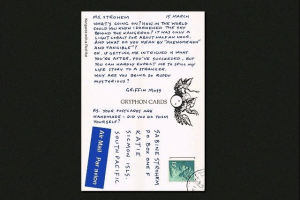 MS. STROHEM 15 MARCH
WHAT'S GOING ON? HOW IN THE WORLD
COULD YOU KNOW I DARKENED THE SKY
BEHIND THE KANGAROO? IT WAS ONLY A
LIGHT COLOUR FOR ABOUT HALF AN HOUR.
AND WHAT DO YOU MEAN BY "PHENOMENON"
AND TANGIBLE?
OK. IF GETTING ME INTRIGUED IS WHAT
YOU'RE AFTER, YOU'VE SUCCEEDED, BUT
YOU CAN HARDLY EXPECT ME TO SPILL MY
LIFE STORY TO A STRANGER.
WHY ARE YOU BEING SO
MYSTERIOUS?
GRIFFIN MOSS
GRYPHON CARDS
PS. YOUR POSTCARDS ARE
HANDMADE – DID YOU DO THEM
YOURSELF?
Air Mail
Par avion
SABINE STROHEM
PO BOX ONE F
KATIE
SICMON ISLS.
SOUTH PACIFIC